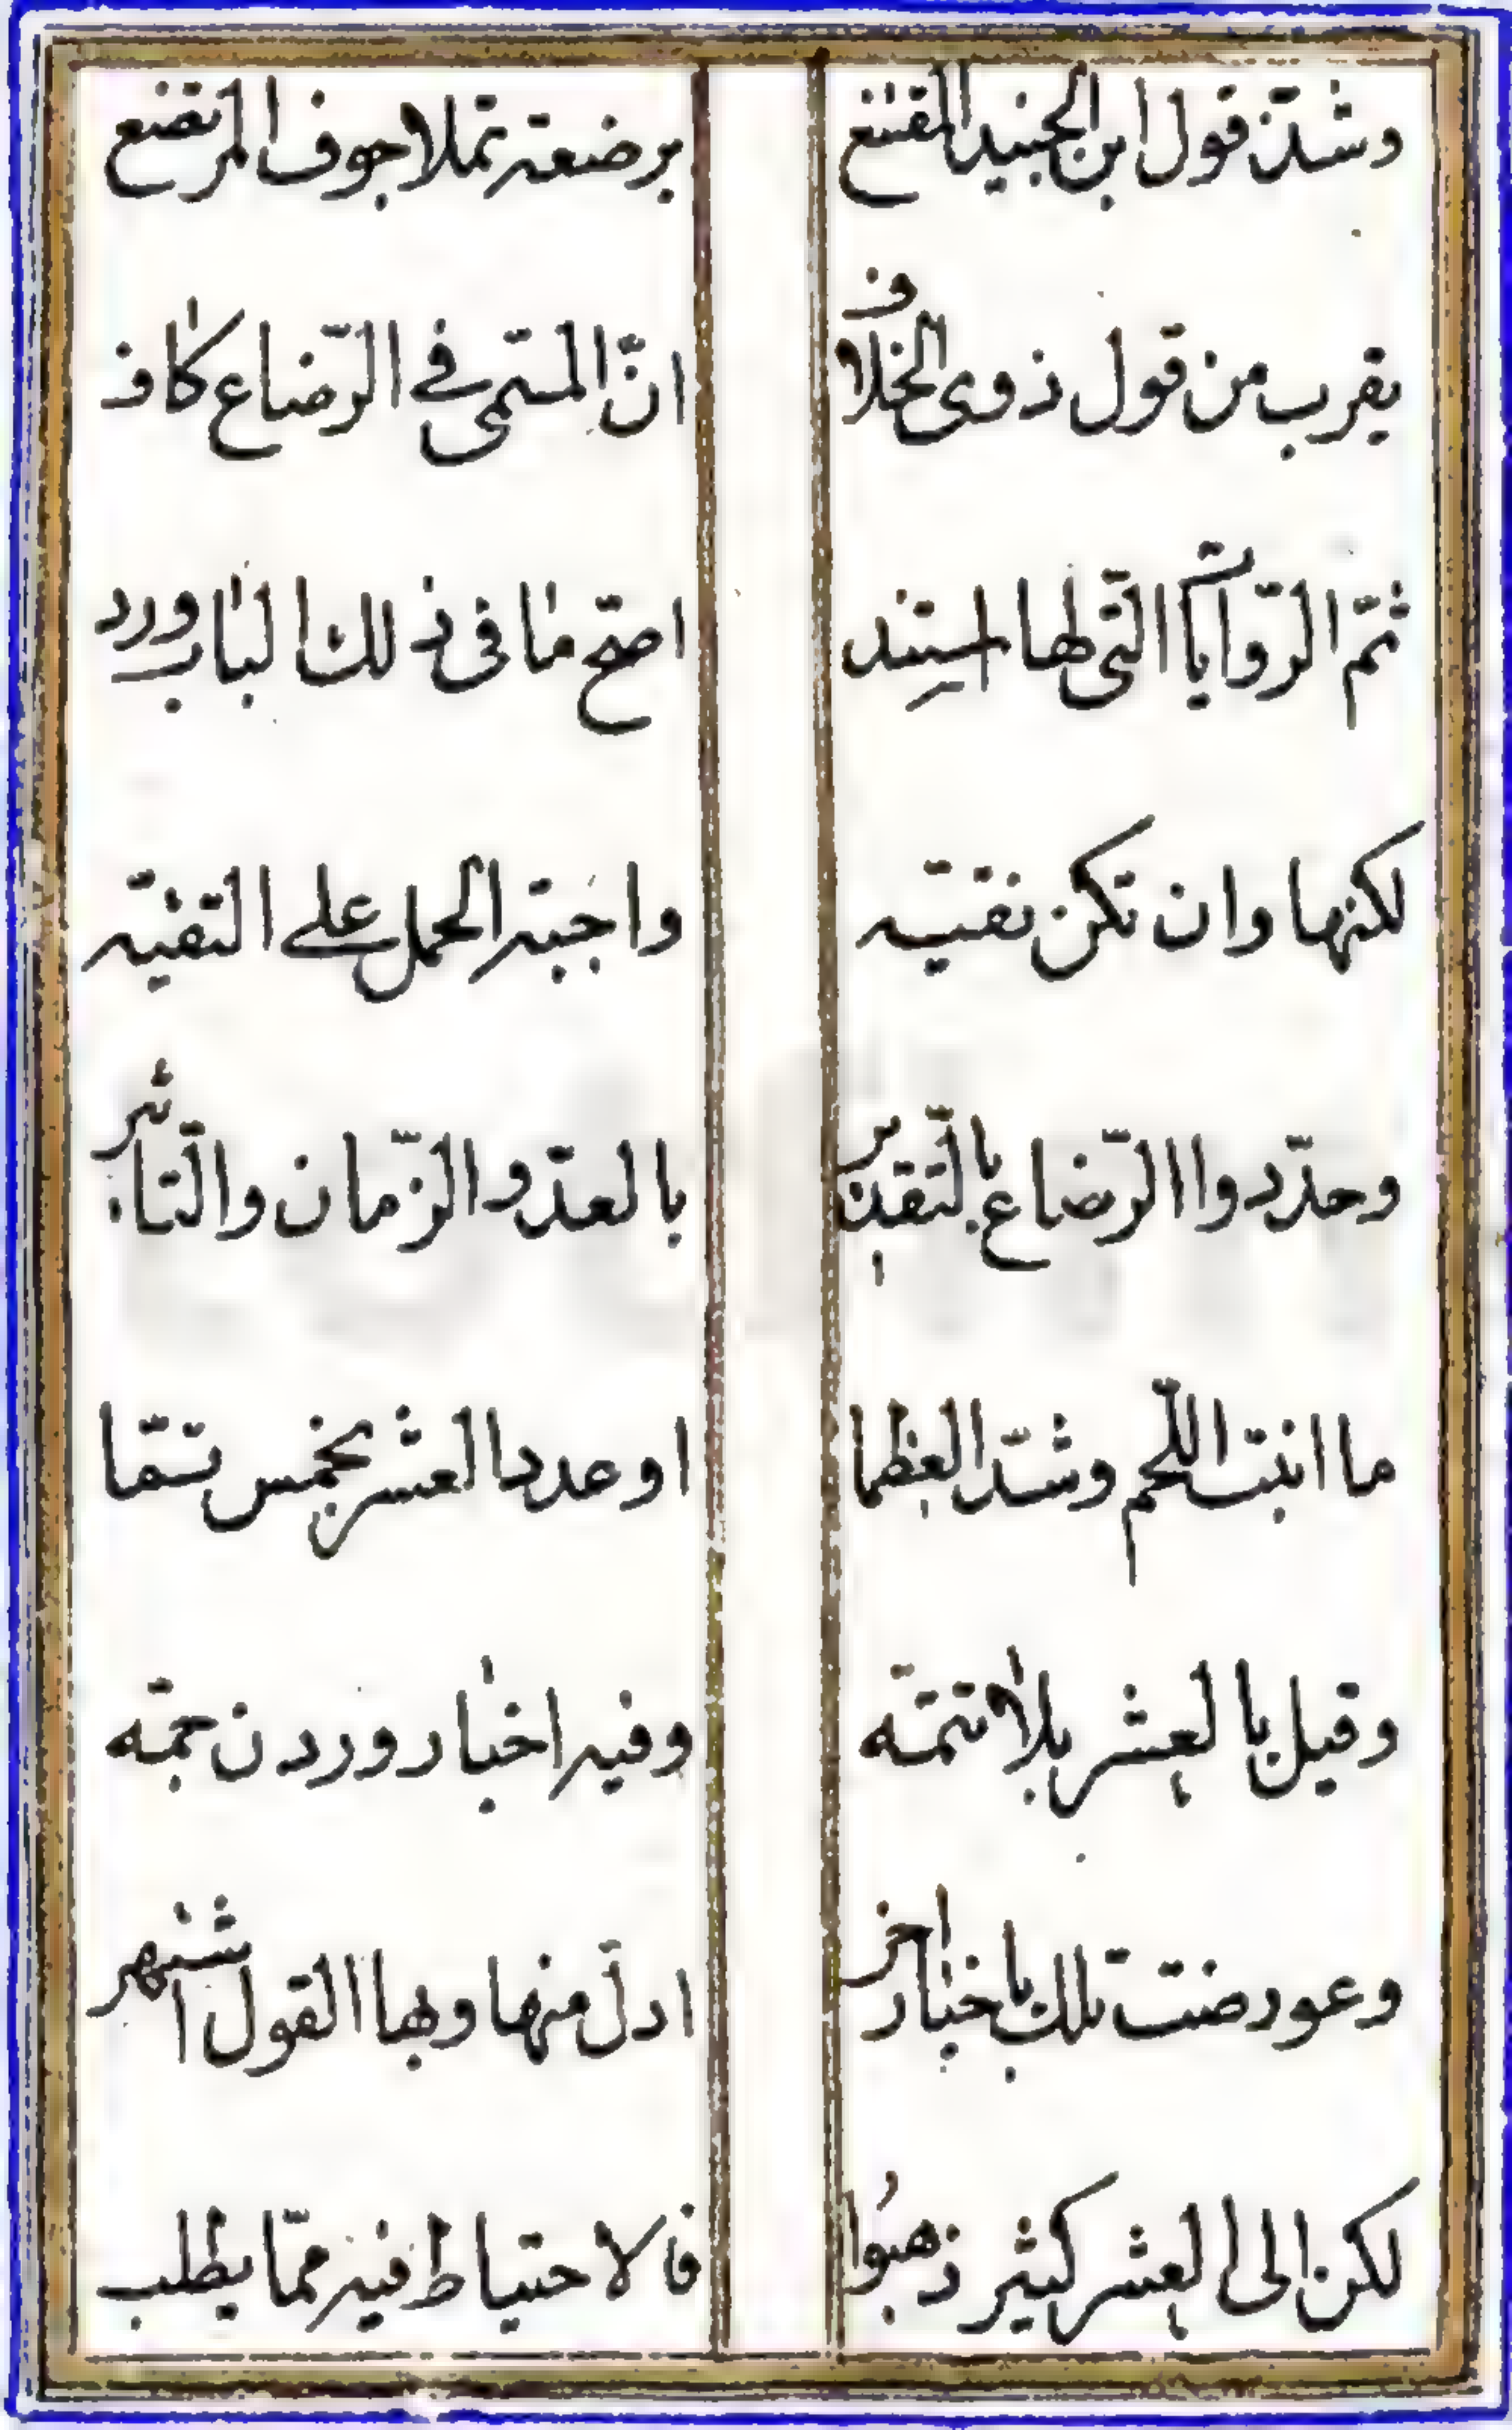 وشذّ قول ابن الجنيد المقتنع برضعة تملا جوف المرتضع
يقرب من قول ذوى الخلاف انّ المسمّى في الرّضاع كاف
ثمّ الرّوايات الّتى لها استند اصحّ ما فى ذلك الباب ورد
لكنها وان تكن نقيّه واجبة الحمل على التقيّه
وحدّدوا الرّضاع بالتّقدير بالعدّ والزّمان والتّاثير
ما انبت اللّحم وشدّ العظما او عدد العشر بخمس تمّما
وقيل بالعشر بلا تتمّه وفيه اخبار وردن جمّه
وعورضت تلك باخبار اخر ادلّ منها وبها القول اشتهر
لكن الى العشر كثير ذهبُوا فالاحتياط فيه ممّا يطلب